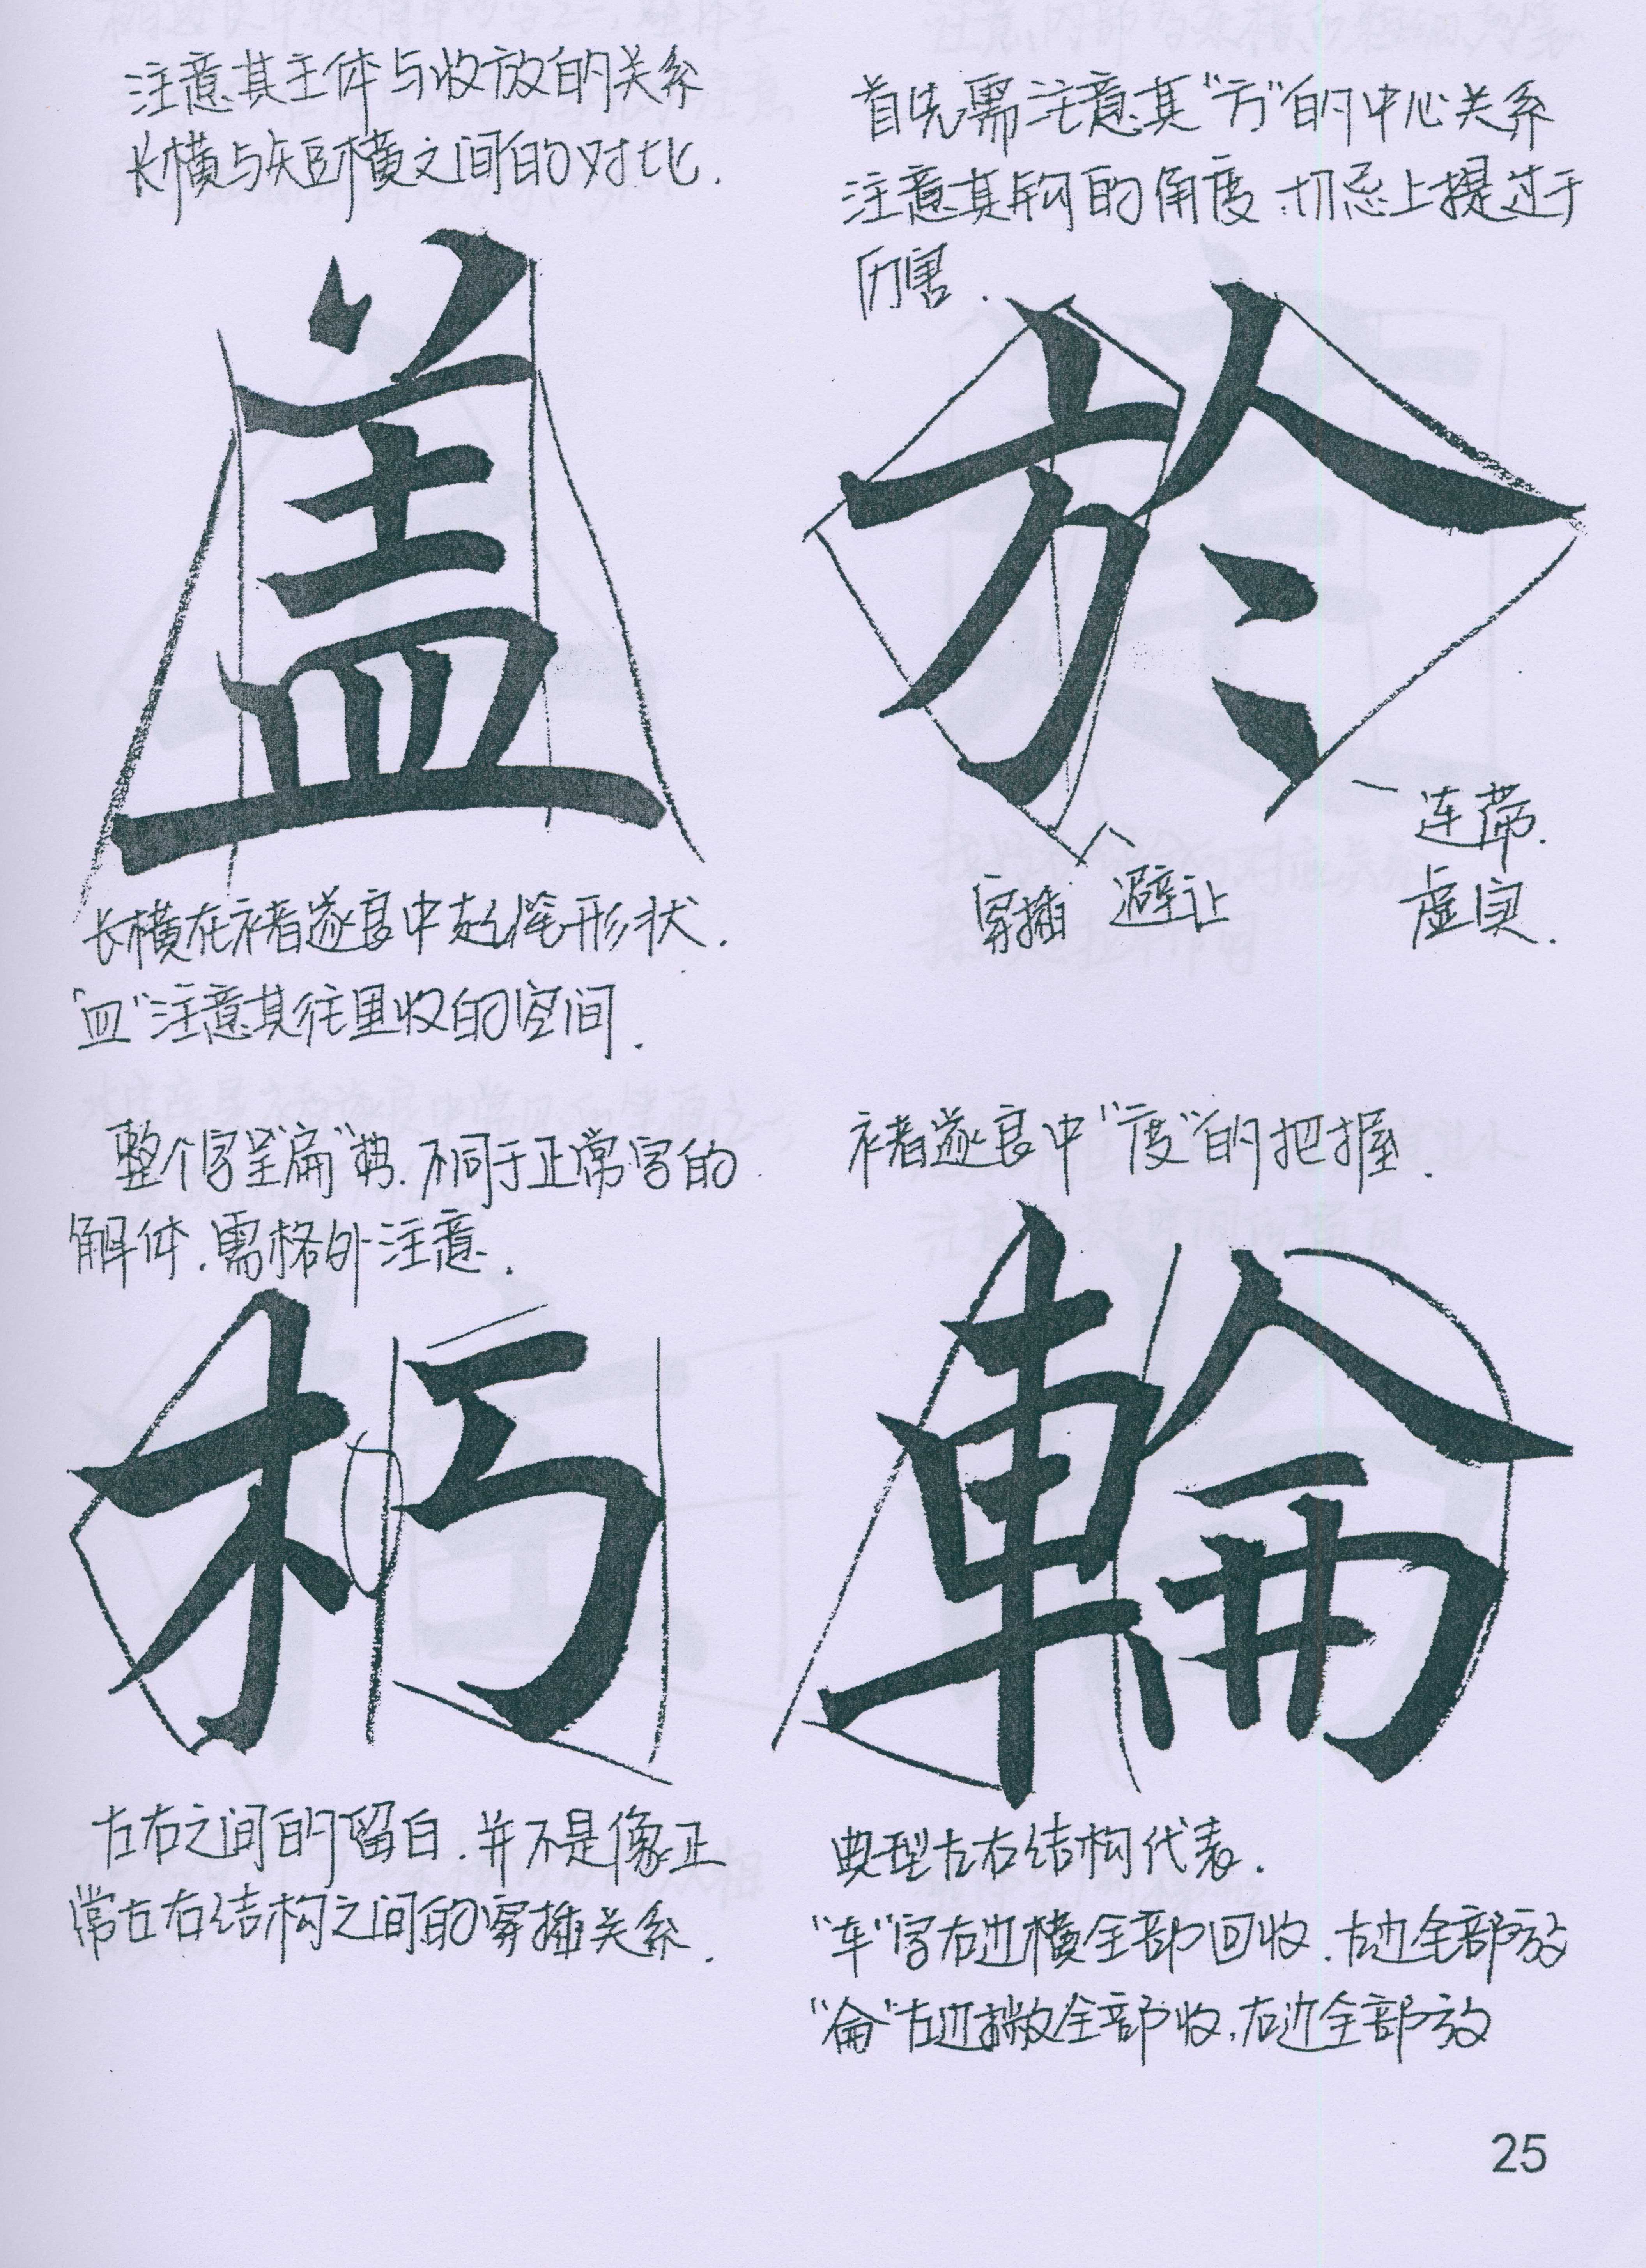 注意其主体与收放的关系
长横与短横之间的对比.
盖
长横在褚遂良中起尾形状.
"皿"注意其往里收的空间.
首先需注意其"方"的中心关系
注意其钩的角度.切忌上提过于
厉害.
於
穿插 避让
连带.
虚实.
整个字呈"扁"势.不同于正常字的
解体.需格外注意.
朽
左右之间的留白.并不是像正
常左右结构之间的穿插关系.
褚遂良中"度"的把握.
輪
典型左右结构代表.
"车"字右边横全部回收.左边全部放
"侖"左边撇全部收.右边全部放
25